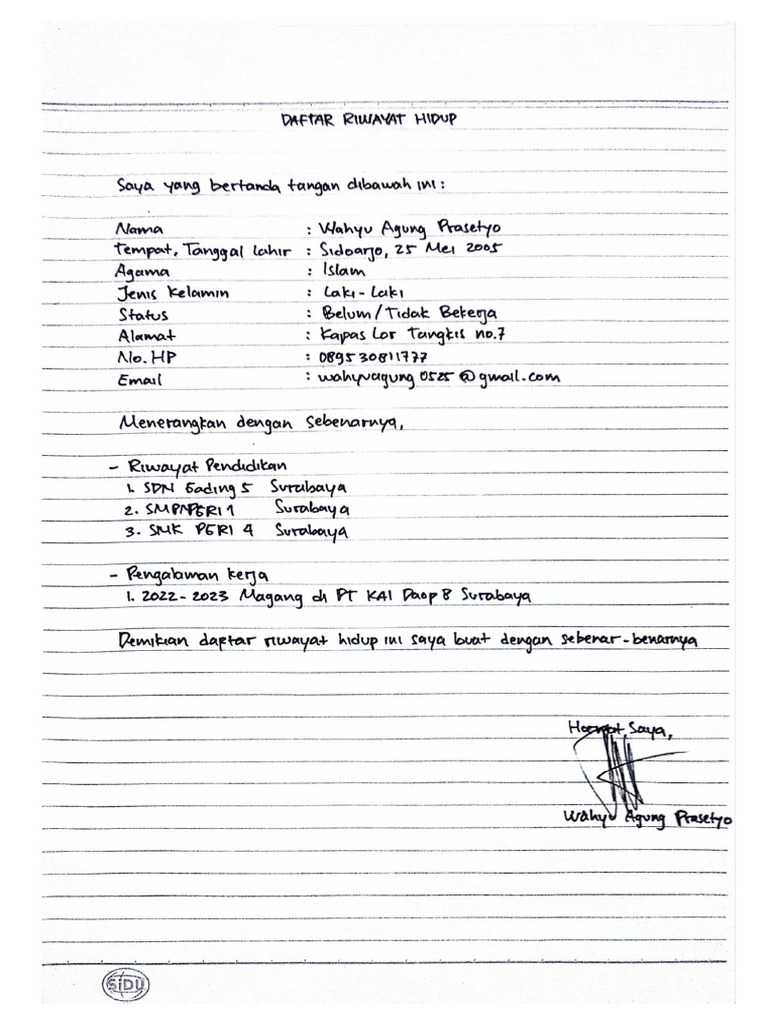 DAFTAR RIWAYAT HIDUP
Saya yang bertanda tangan dibawah ini :
Nama : Wahyu Agung Prasetyo
Tempat, Tanggal Lahir : Sidoarjo, 25 Mei 2005
Agama : Islam
Jenis Kelamin : Laki-Laki
Status : Belum/Tidak Bekerja
Alamat : Kapas Lor Tangkis no.7
No. HP : 089530811777
Email : wahyuagung0525@gmail.com
Menerangkan dengan sebenarnya,
- Riwayat Pendidikan
1. SDN Gading 5 Surabaya
2. SMP PGRI 1 Surabaya
3. SMK PGRI 4 Surabaya
- Pengalaman kerja
1. 2022-2023 Magang di PT KAI Daop 8 Surabaya
Demikian daftar riwayat hidup ini saya buat dengan sebenar-benarnya
Hormat Saya,
Wahyu Agung Prasetyo
SiDU